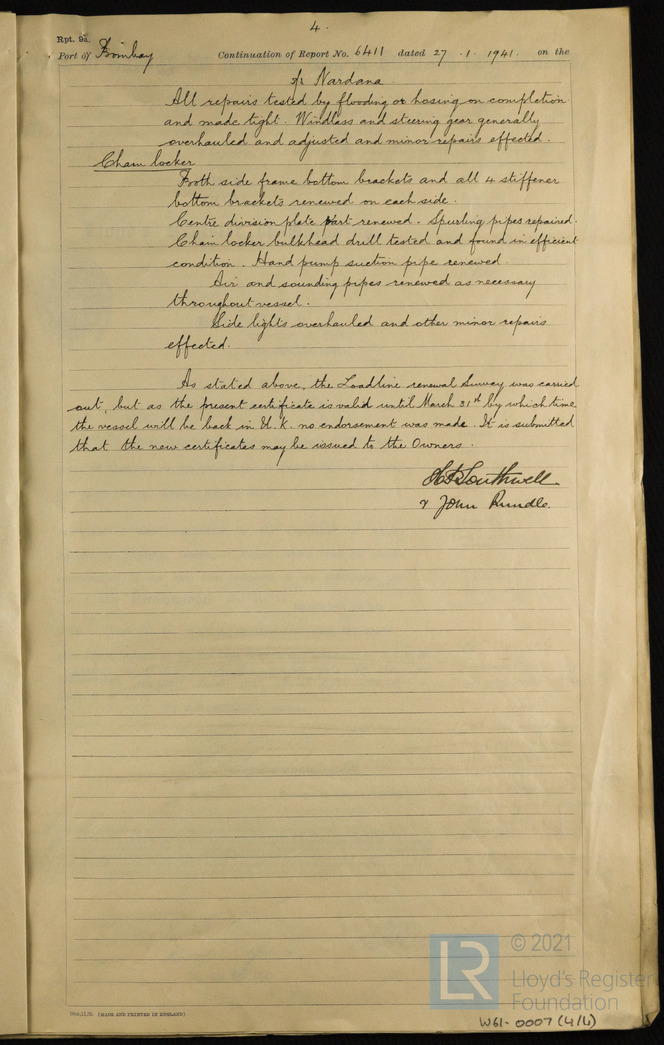 4.
Rpt. 9a.
Port of Bombay Continuation of Report No. 6411 dated 27 . 1 . 1941. on the
s/s Nardana
All repairs tested by flooding or hosing on completion
and made tight. Windlass and steering gear generally
overhauled and adjusted and minor repairs effected.
Chain locker
Both side frame bottom brackets and all 4 stiffener
bottom brackets renewed on each side.
Centre division plate part renewed - Spurling pipes repaired.
Chain locker bulkhead drill tested and found in efficient
condition. Hand pump suction pipe renewed.
Air and sounding pipes renewed as necessary
throughout vessel.
Side lights overhauled and other minor repairs
effected.
As stated above, the Loadline renewal Survey was carried
out, but as the present certificate is valid until March 31st by which time
the vessel will be back in U.K. no endorsement was made. It is submitted
that the new certificates may be issued to the Owners.
Southwell
& John Rundle.
(MADE AND PRINTED IN ENGLAND)
LR
© 2021
Lloyd's Register
Foundation
W61-0007 (4/4)